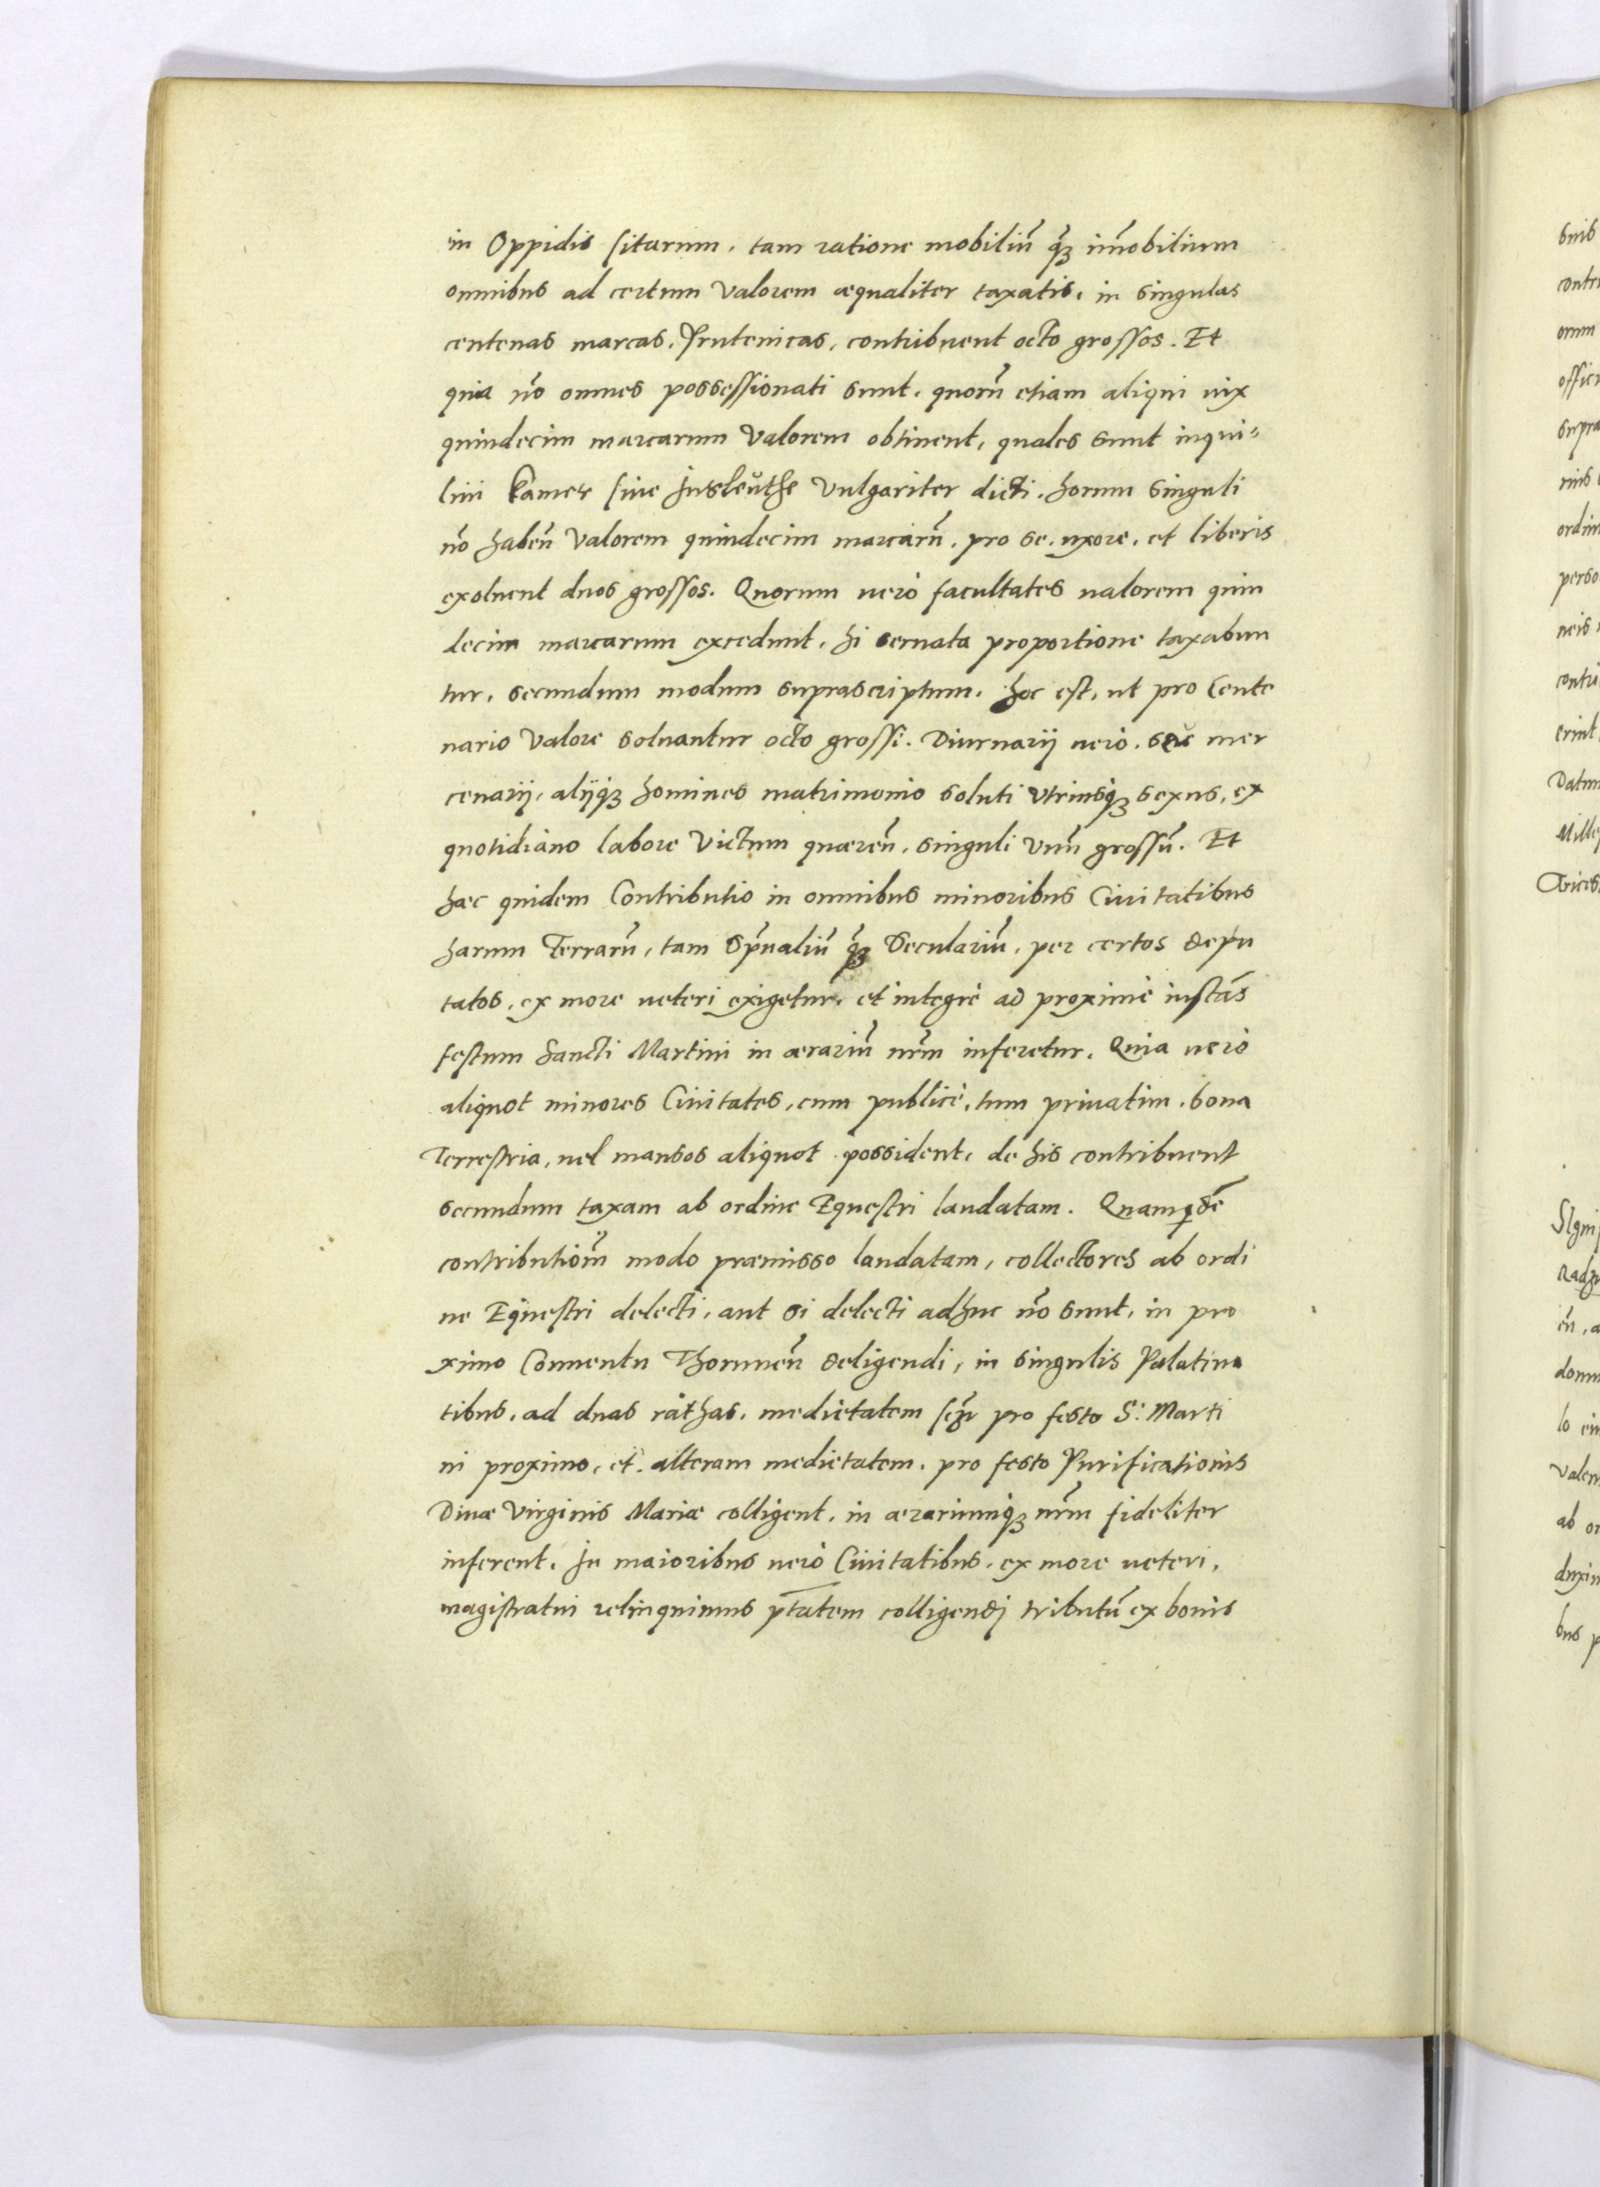 in Oppidis sitarum, tam ratione mobiliũ q̃ʒ im̃obilium
omnibus ad certum valorem æqualiter taxatis, in singulas
centenas marcas, Prutenicas, contribuent octo grossos. Et
quia nõ omnes possessionati sunt, quorũ etiam aliqui vix
quindecim marcarum valorem obtinent, quales sunt inqui=
lini kamer siue Jnsleuthe vulgariter dicti, horum singuli
nõ habeñ valorem quindecim marcarũ, pro se, uxore, et liberis
exoluent duos grossos. Quorum verò facultates valorem quin
decim marcarum excedunt, hi seruata proportione taxabun
tur, secundum modum suprascriptum, hoc est, ut pro Cente
nario valore soluantur octo grossi. Diurnarij verò, seu mer
cenarij, alijq̃ʒ homines matrimonio soluti vtriusq̃ʒ sexus, ex
quotidiano labore victum quæreñ, singuli vnũ grossũ. Et
hæc quidem Contributio in omnibus minoribus Ciuitatibus
harum Terrarũ, tam Sp̃ualiũ q̃ʒ Seculariũ, per certos depu
tatos, ex more veteri exigetur, et integrè ad proximè instãs
festum Sancti Martini in ærariũ nr̃m inferetur. Quia verò
aliquot minores Ciuitates, cum publicè, tum priuatim, bona
Terrestria, uel mansos aliquot possident, de his contribuent
secundum taxam ab ordine Equestri laudatam. Quamq̃dẽ
contribution̄m modo præmisso laudatam, collectores ab ordi
ne Equestri delecti, aut si delecti adhuc nõ sunt, in pro
ximo Conuentu Thoruneñ deligendi, in singulis Palatina
tibus, ad duas ráthas, medietatem scʒ̃ pro festo S: Marti
ni proximo, et alteram medietatem, pro festo Purificationis
Diuæ Virginis Mariæ colligent, in ærariumq̃ʒ nr̃m fideliter
inferent. Jn maioribus verò Ciuitatibus, ex more veteri,
magistratui relinquimus p̄tatem colligendj tributũ ex bonis